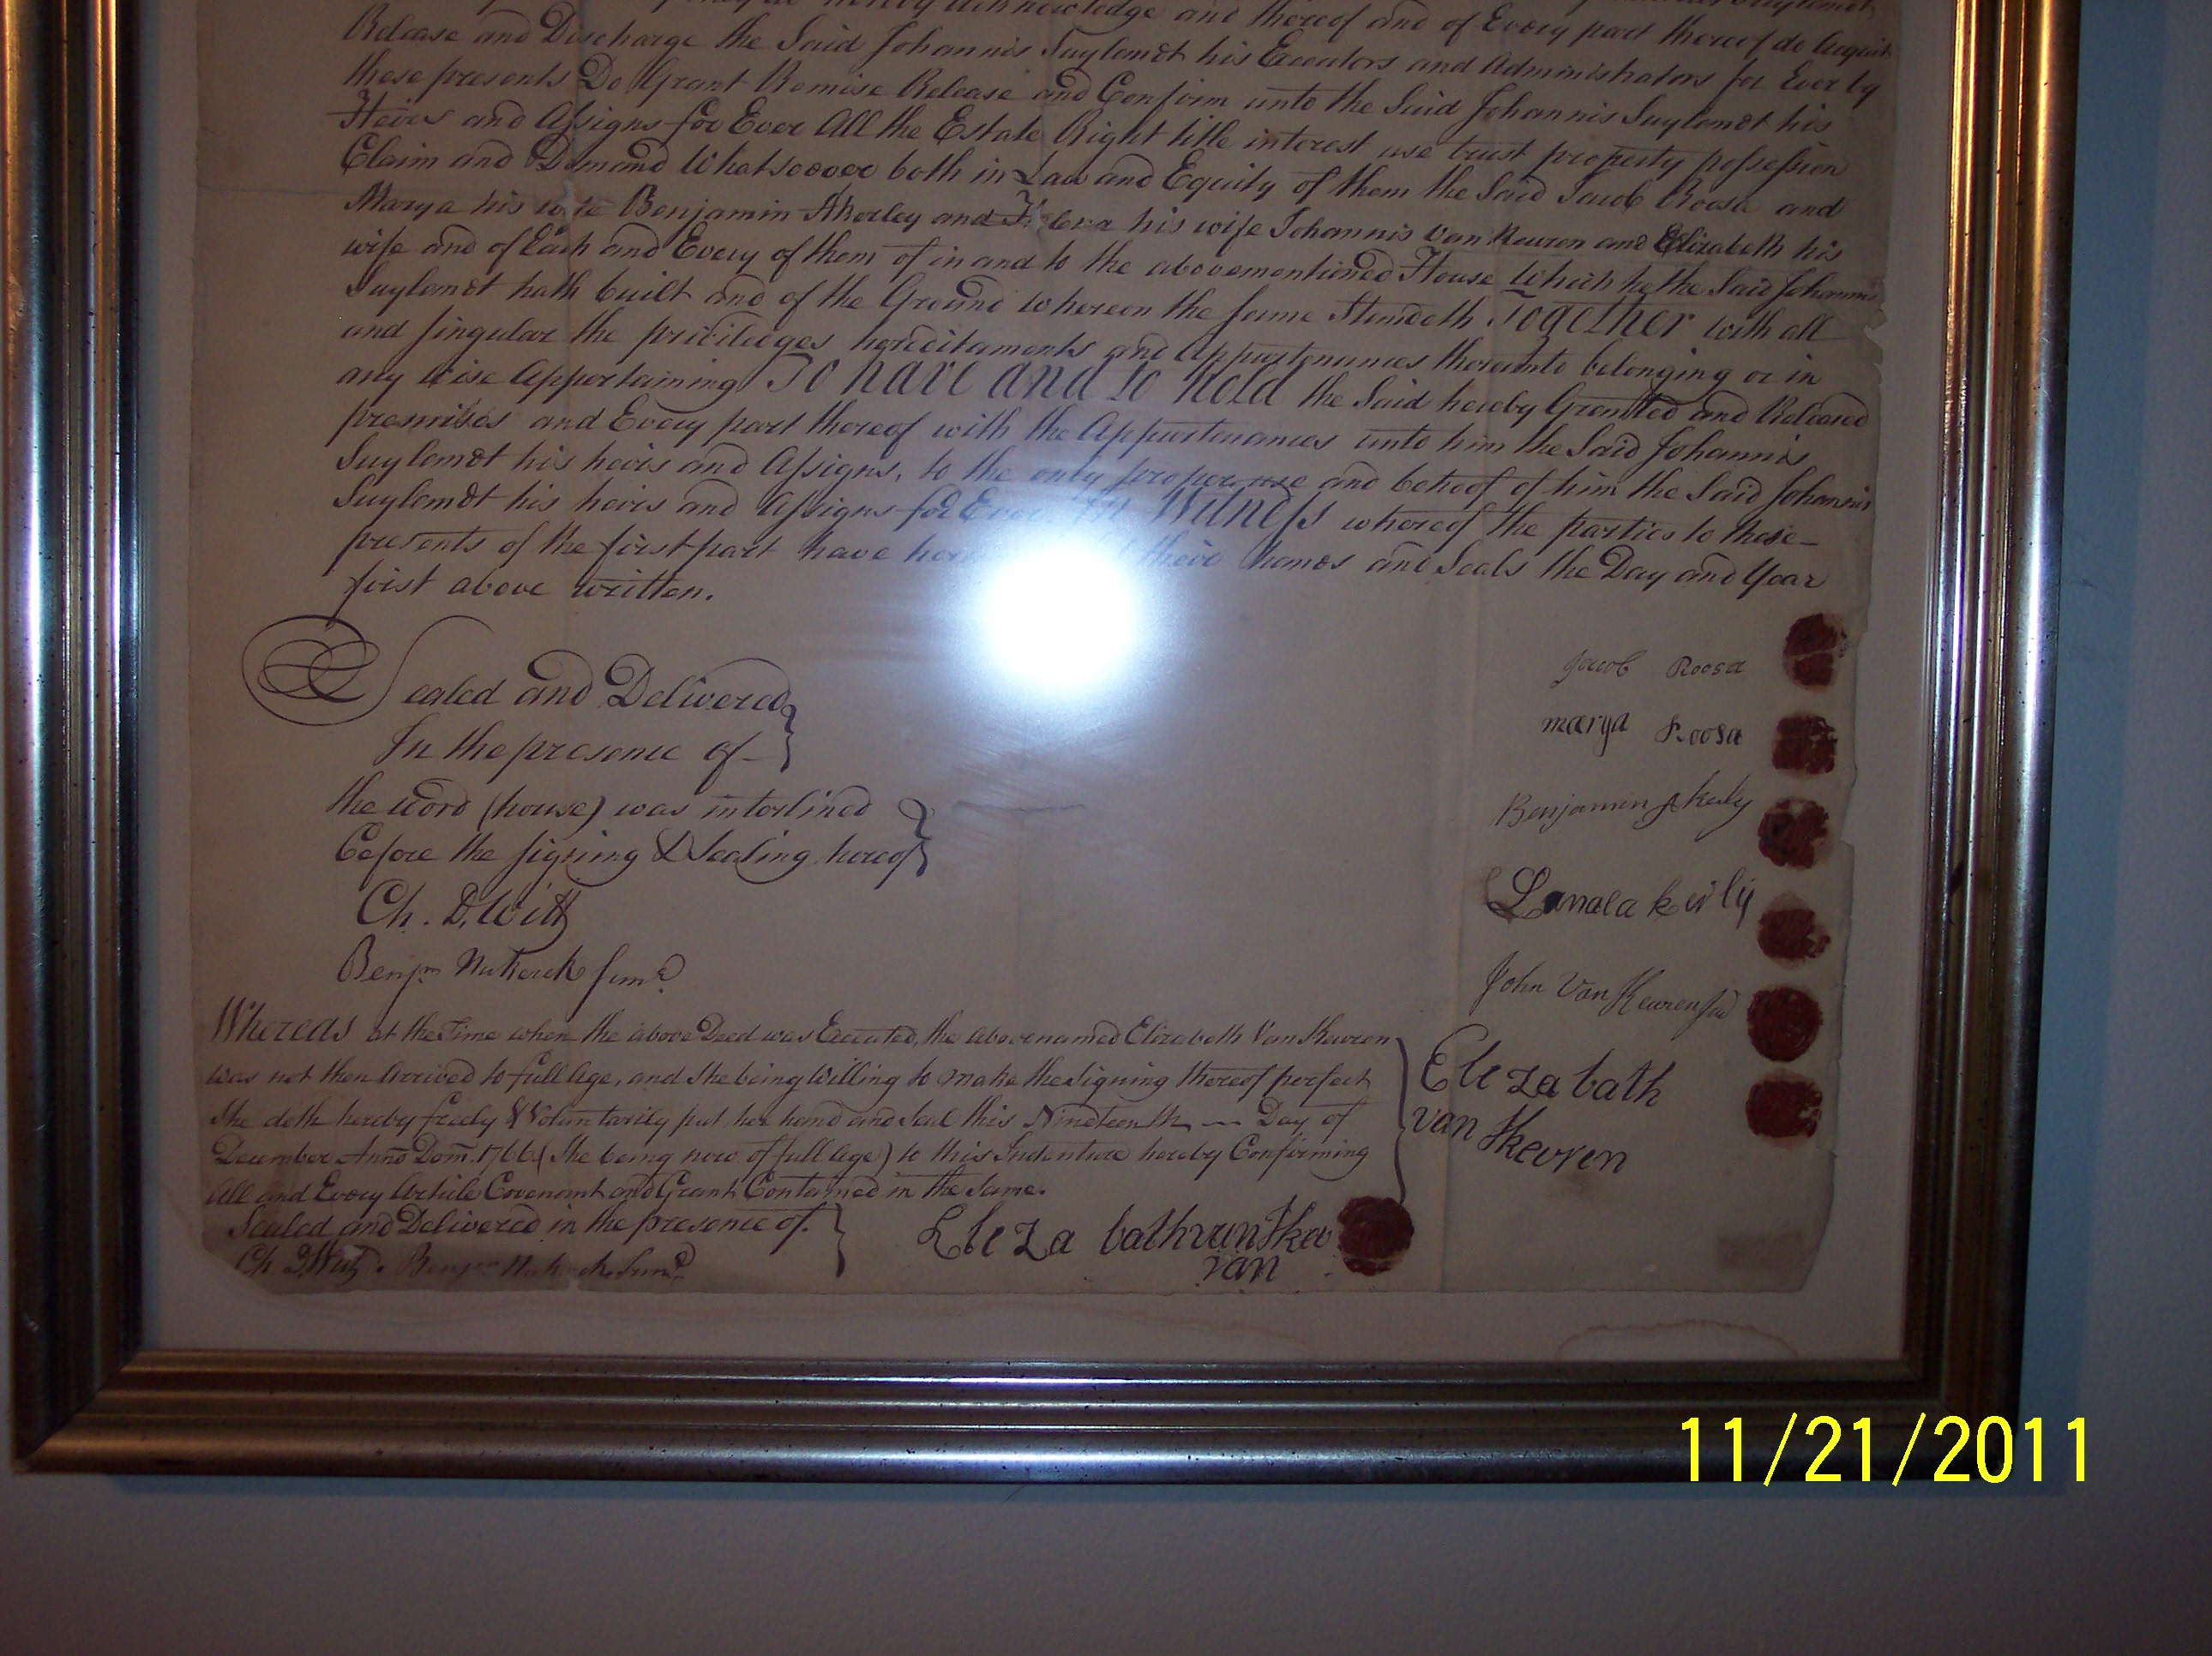 hereby acknowledge and thereof and of Every part thereof do Acquit
Release and Discharge the Said Johannis Suylandt his Executors and Administrators for Ever by
these presents Do Grant Remise Release and Confirm unto the Said Johannis Suylandt his
Heirs and Assigns for Ever All the Estate Right title interest use trust property possession
Claim and Demand Whatsoever both in Law and Equity of them the Said Jacob Roosa and
Marya his wife Benjamin Akerley and his wife Johannis Van Keuren and Elizabeth his
wife and of Each and Every of them of in and to the abovementioned House Which he the Said Johannis
Suylandt hath built and of the Ground whereon the same Standeth Together with all
and singular the priviledges hereditaments and Appurtenances thereunto belonging or in
any wise Appertaining To have and to hold the Said hereby Granted and Released
premises and Every part thereof with the Appurtenances unto him the Said Johannis
Suylandt his heirs and Assigns, to the only proper use and behoof of him the Said Johannis
Suylandt his heirs and Assigns for Ever In Witness whereof the parties to these
presents of the first part have their hands and Seals the Day and Year
first above written.
Sealed and Delivered
In the presence of
the word (house) was interlined
Before the signing & Sealing hereof
Ch. D. Witt
Benjm Junr
Jacob Roosa
marya Roosa
Benjamin Akerly
Lanala keirly
John Van Keuren Jur
Elezabath
van Kevren
Whereas at the Time when the above Deed was Executed, the abovenamed Elizabeth Van Keuren
was not then Arrived to full Age, and She being Willing to make the Signing thereof perfect
She doth hereby freely & Voluntarily put her hand and Seal this Nineteenth Day of
December Anno Dom. 1766 (She being now of full age) to this Indenture hereby Confirming
All and Every Article Covenant and Grant Contained in the Same.
Sealed and Delivered in the presence of.
Ch. D. Witt. Benjm Junr
Eleza bath van Kev
ran
11/21/2011